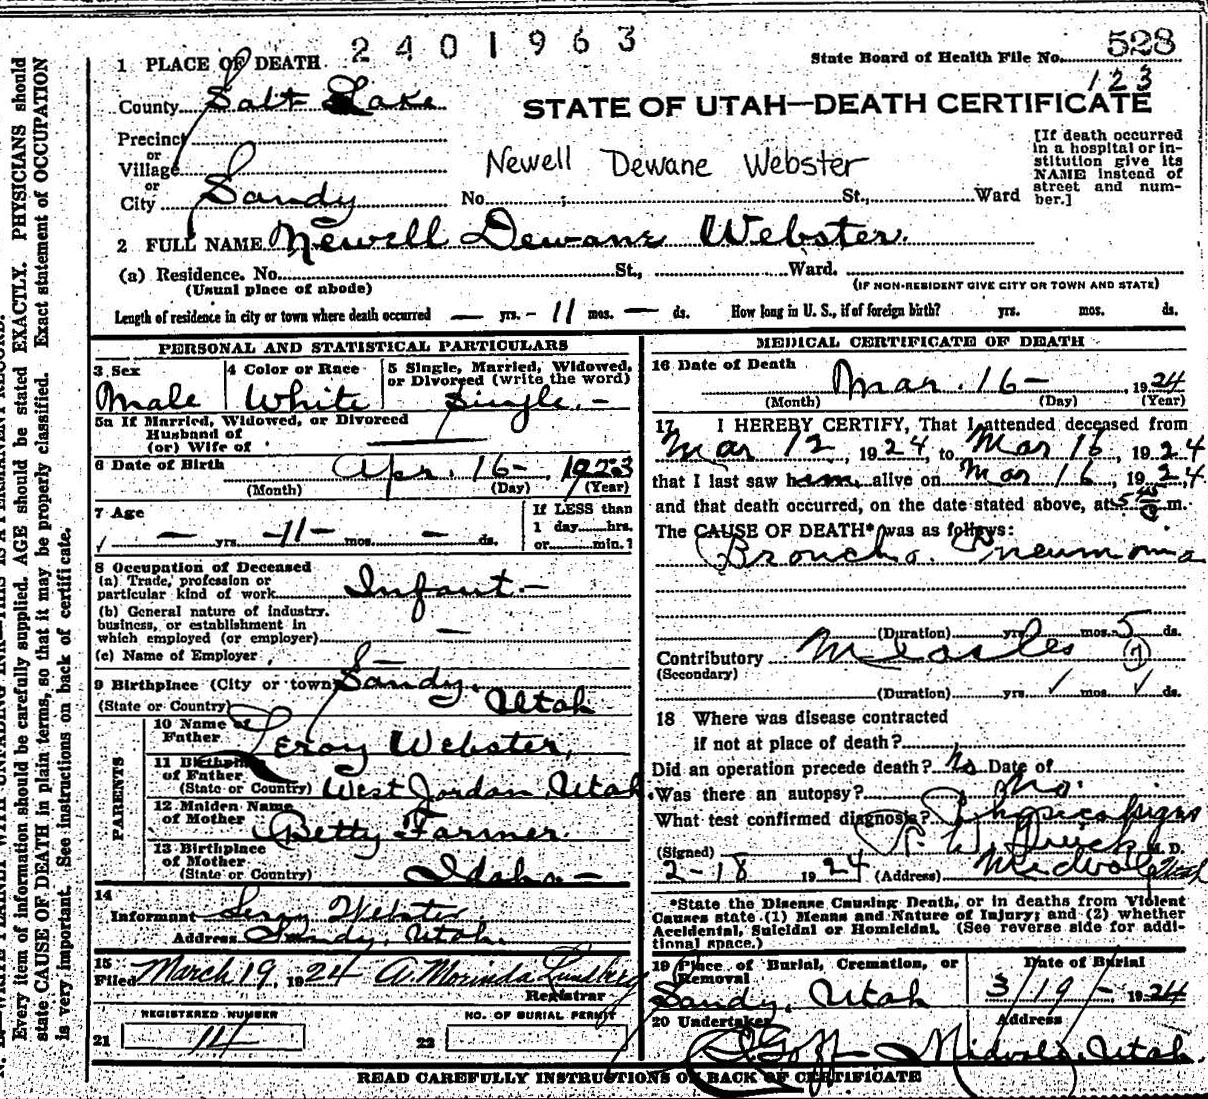 2401963
State Board of Health File No. 528
123
1 PLACE OF DEATH
County Salt Lake
STATE OF UTAH—DEATH CERTIFICATE
Precinct
or
Village
or
City Sandy No. St., Ward
Newell Dewane Webster
[If death occurred
in a hospital or in-
stitution give its
NAME instead of
street and num-
ber.]
2 FULL NAME Newell Dewane Webster.
(a) Residence. No. St., Ward.
(Usual place of abode)
(IF NON-RESIDENT GIVE CITY OR TOWN AND STATE)
Length of residence in city or town where death occurred — yrs. - 11 mos. — ds. How long in U. S., if of foreign birth? yrs. mos. ds.
PERSONAL AND STATISTICAL PARTICULARS
3 Sex Male
4 Color or Race White
5 Single, Married, Widowed,
or Divorced (write the word)
Single. -
5a If Married, Widowed, or Divorced
Husband of
(or) Wife of
6 Date of Birth Apr. 16- 1923
(Month) (Day) (Year)
7 Age — yrs. -11- mos. - ds.
If LESS than
1 day hrs.
or min.?
8 Occupation of Deceased
(a) Trade, profession or
particular kind of work Infant. -
(b) General nature of industry.
business, or establishment in
which employed (or employer) —
(c) Name of Employer —
9 Birthplace (City or town) Sandy,
(State or Country) Utah
PARENTS
10 Name of
Father Leroy Webster,
11 Birthplace
of Father
(State or Country) West Jordan, Utah
12 Maiden Name
of Mother Betty Farmer.
13 Birthplace
of Mother
(State or Country) Idaho -
14
Informant Leroy Webster
Address Sandy, Utah.
15
Filed March 19, 1924 A. Morinda Lundberg
Registrar
REGISTERED NUMBER
21 14
NO. OF BURIAL PERMIT
22
MEDICAL CERTIFICATE OF DEATH
16 Date of Death
Mar. 16- 1924
(Month) (Day) (Year)
17 I HEREBY CERTIFY, That I attended deceased from
Mar 12, 1924, to Mar 16, 1924
that I last saw him alive on Mar 16, 1924,
and that death occurred, on the date stated above, at 5 m.
The CAUSE OF DEATH* was as follows:
Broncho. Pneumonia
(Duration) yrs. mos. 5 ds.
Contributory Measles 7
(Secondary)
(Duration) yrs. mos. ds.
18 Where was disease contracted
if not at place of death?
Did an operation precede death? No Date of
Was there an autopsy? No.
What test confirmed diagnosis? Physical signs
(Signed) M. D.
2-18 1924 (Address) Midvale, Utah
*State the Disease Causing Death, or in deaths from Violent
Causes state (1) Means and Nature of Injury; and (2) whether
Accidental, Suicidal or Homicidal. (See reverse side for addi-
tional space.)
19 Place of Burial, Cremation, or
Removal
Sandy, Utah
Date of Burial
3/19/- 1924
20 Undertaker Address
Goff - Midvale, Utah.
READ CAREFULLY INSTRUCTIONS ON BACK OF CERTIFICATE
Every item of information should be carefully supplied. AGE should be stated EXACTLY. PHYSICIANS should
state CAUSE OF DEATH in plain terms, so that it may be properly classified. Exact statement of OCCUPATION
is very important. See instructions on back of certificate.